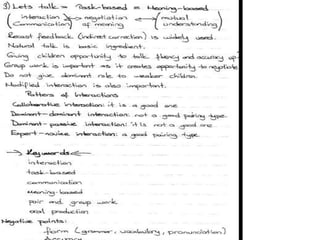 3) Lets talk = Task-based = Meaning-based
( interaction → negotiation ← ( mutual
(communication of meaning understanding)
Recast feedback (indirect correction) is widely used.
Natural talk is basic ingredient.
Giving children opportunity to talk fluency and accuracy up
Group work is important as it creates opportunity to negotiate
Do not give dominant role to weaker children.
Modified interaction is also important.
Patters of Interactions
Collaborative interaction: it is a good one
Dominant-dominant interaction: not a good pairing type.
Dominant-passive interaction: it is not a good one
Expert-novice interaction: a good pairing type.
→ Keywords ←
interaction
task-based
communication
Meaning-based
pair and group work
oral production
Negative points:
form (grammar, vocabulary, pronunciation)
Accuracy